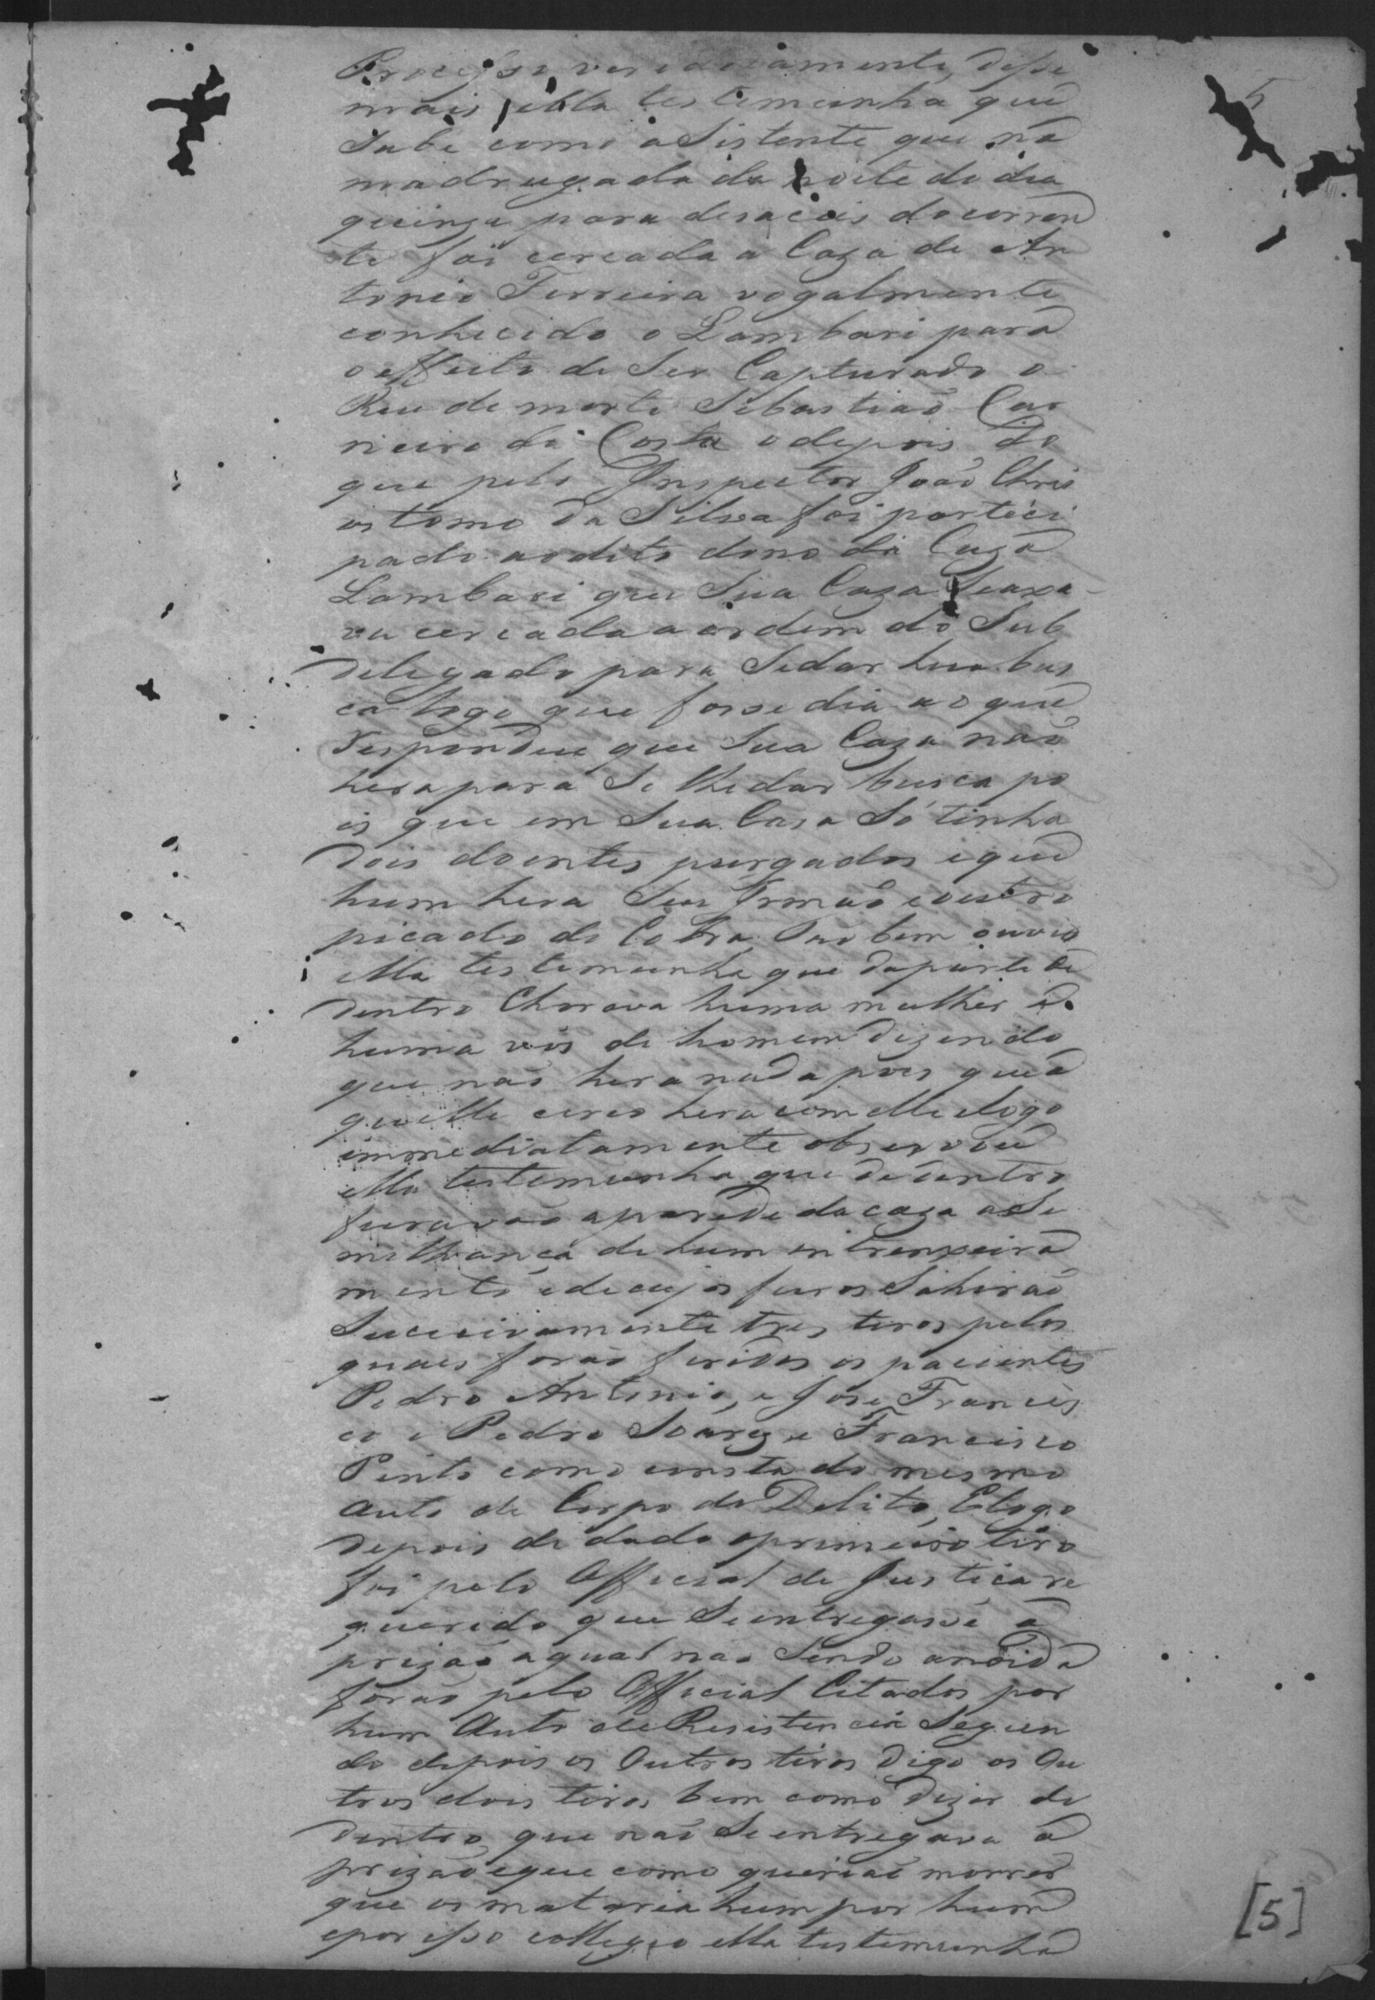 5
Proceço verdadeiramente, disse
mais ella testemunha que
Sabe como aSistente que na
madrugada da noite do dia
quinze para desaceis do corren
te foi cercada a Caza de An
tonio Ferreira vogalmente
conhecido o Lambari para
o effeito de Ser Capturado o
Reu de morte Sebastiaõ Car
neiro da Costa e depois do
que pelo Inspector João Chris
ostomo da Silva foi parteci
pado ao dito dono da Caza
Lambari que Sua Caza Seaxa
va cercada a ordem do Sub
delegado para Sedar hua bus
ca logo que fosse dia ao que
respondeu que Sua Caza naõ
hera para Se lhe dar busca po
is que em Sua Casa Só tinha
dois doentes purgados e que
hum hera Seu Irmaõ e outro
picado de Cobra bem ouvio
ella testemunha que daparte de
dentro Chorava huma mulher e
huma vós de homem dizendo
que naõ hera nada pois que a
quelle cerco hera com elle e logo
immediatamente observou
ella testemunha que de dentro
furavaõ a parede da caza aSe
milhança de hum entrenxeira
mento e de cujos furos Sahiraõ
Sucecivamente tres tiros pelos
quaes foraõ feridos os pacientes
Pedro Antonio, e Jose Francis
co e Pedro Soarez e Francisco
Pinto como consta do mesmo
auto de Corpo de Delito, E logo
depois de dado o primeiro tiro
foi pelo Official de Justica re
querido que Se entregasse á
prizaõ a qual naõ Sendo
foraõ pelo Official Citados por
hum Auto de Resistencia Seguin
do depois os Outros tiros digo os Ou
tros dois tiros bem como dizer de
dentro que naõ Se entregava á
prizaõ e que como queriaõ morrer
que os mataria hum por hum
e por isso ella testemunha
[5]